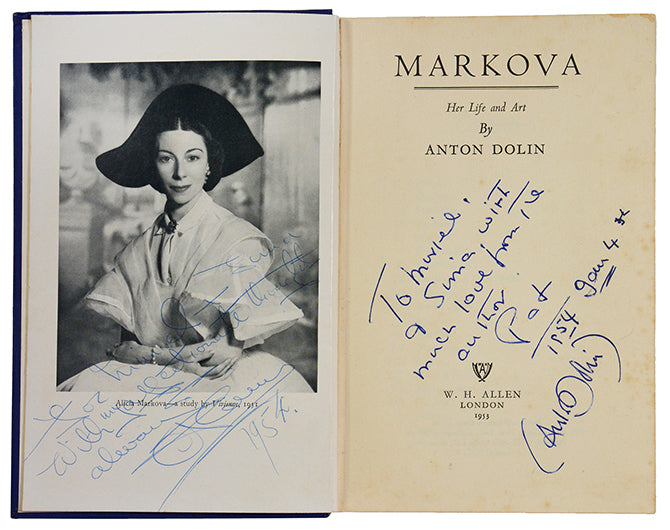 Alicia Markova—a study by Vivienne, 1953
For Muriel & Sima
With my
always
1954.
MARKOVA
Her Life and Art
By
ANTON DOLIN
To Muriel,
& Sima with
much love from the
author.
Pat
1954 Jan 4
(Anton Dolin)
W. H. ALLEN
LONDON
1953